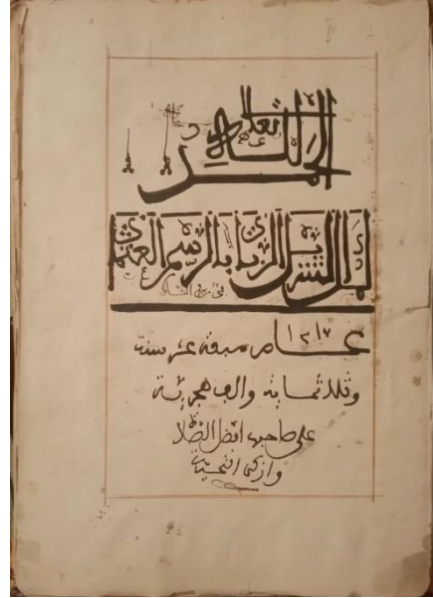 الحمد لله تعلى
كمل التنزيل الرباني بالرسم العثماني
عام ١٣١٧ سبعة عشر سنة
وثلاثماية والف هجرية
على صاحبها افضل الصلاة
وازكى التحيات